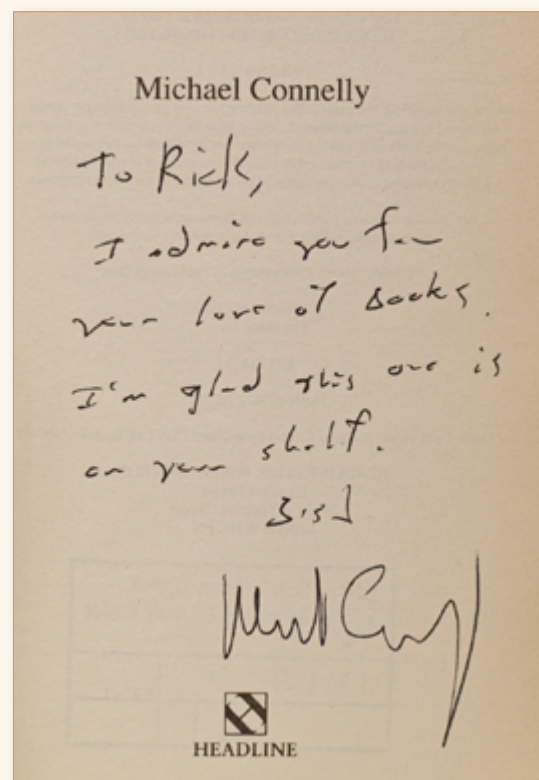 Michael Connelly
To Rick,
I admire you for
your love of books.
I'm glad this one is
on your shelf.
HEADLINE